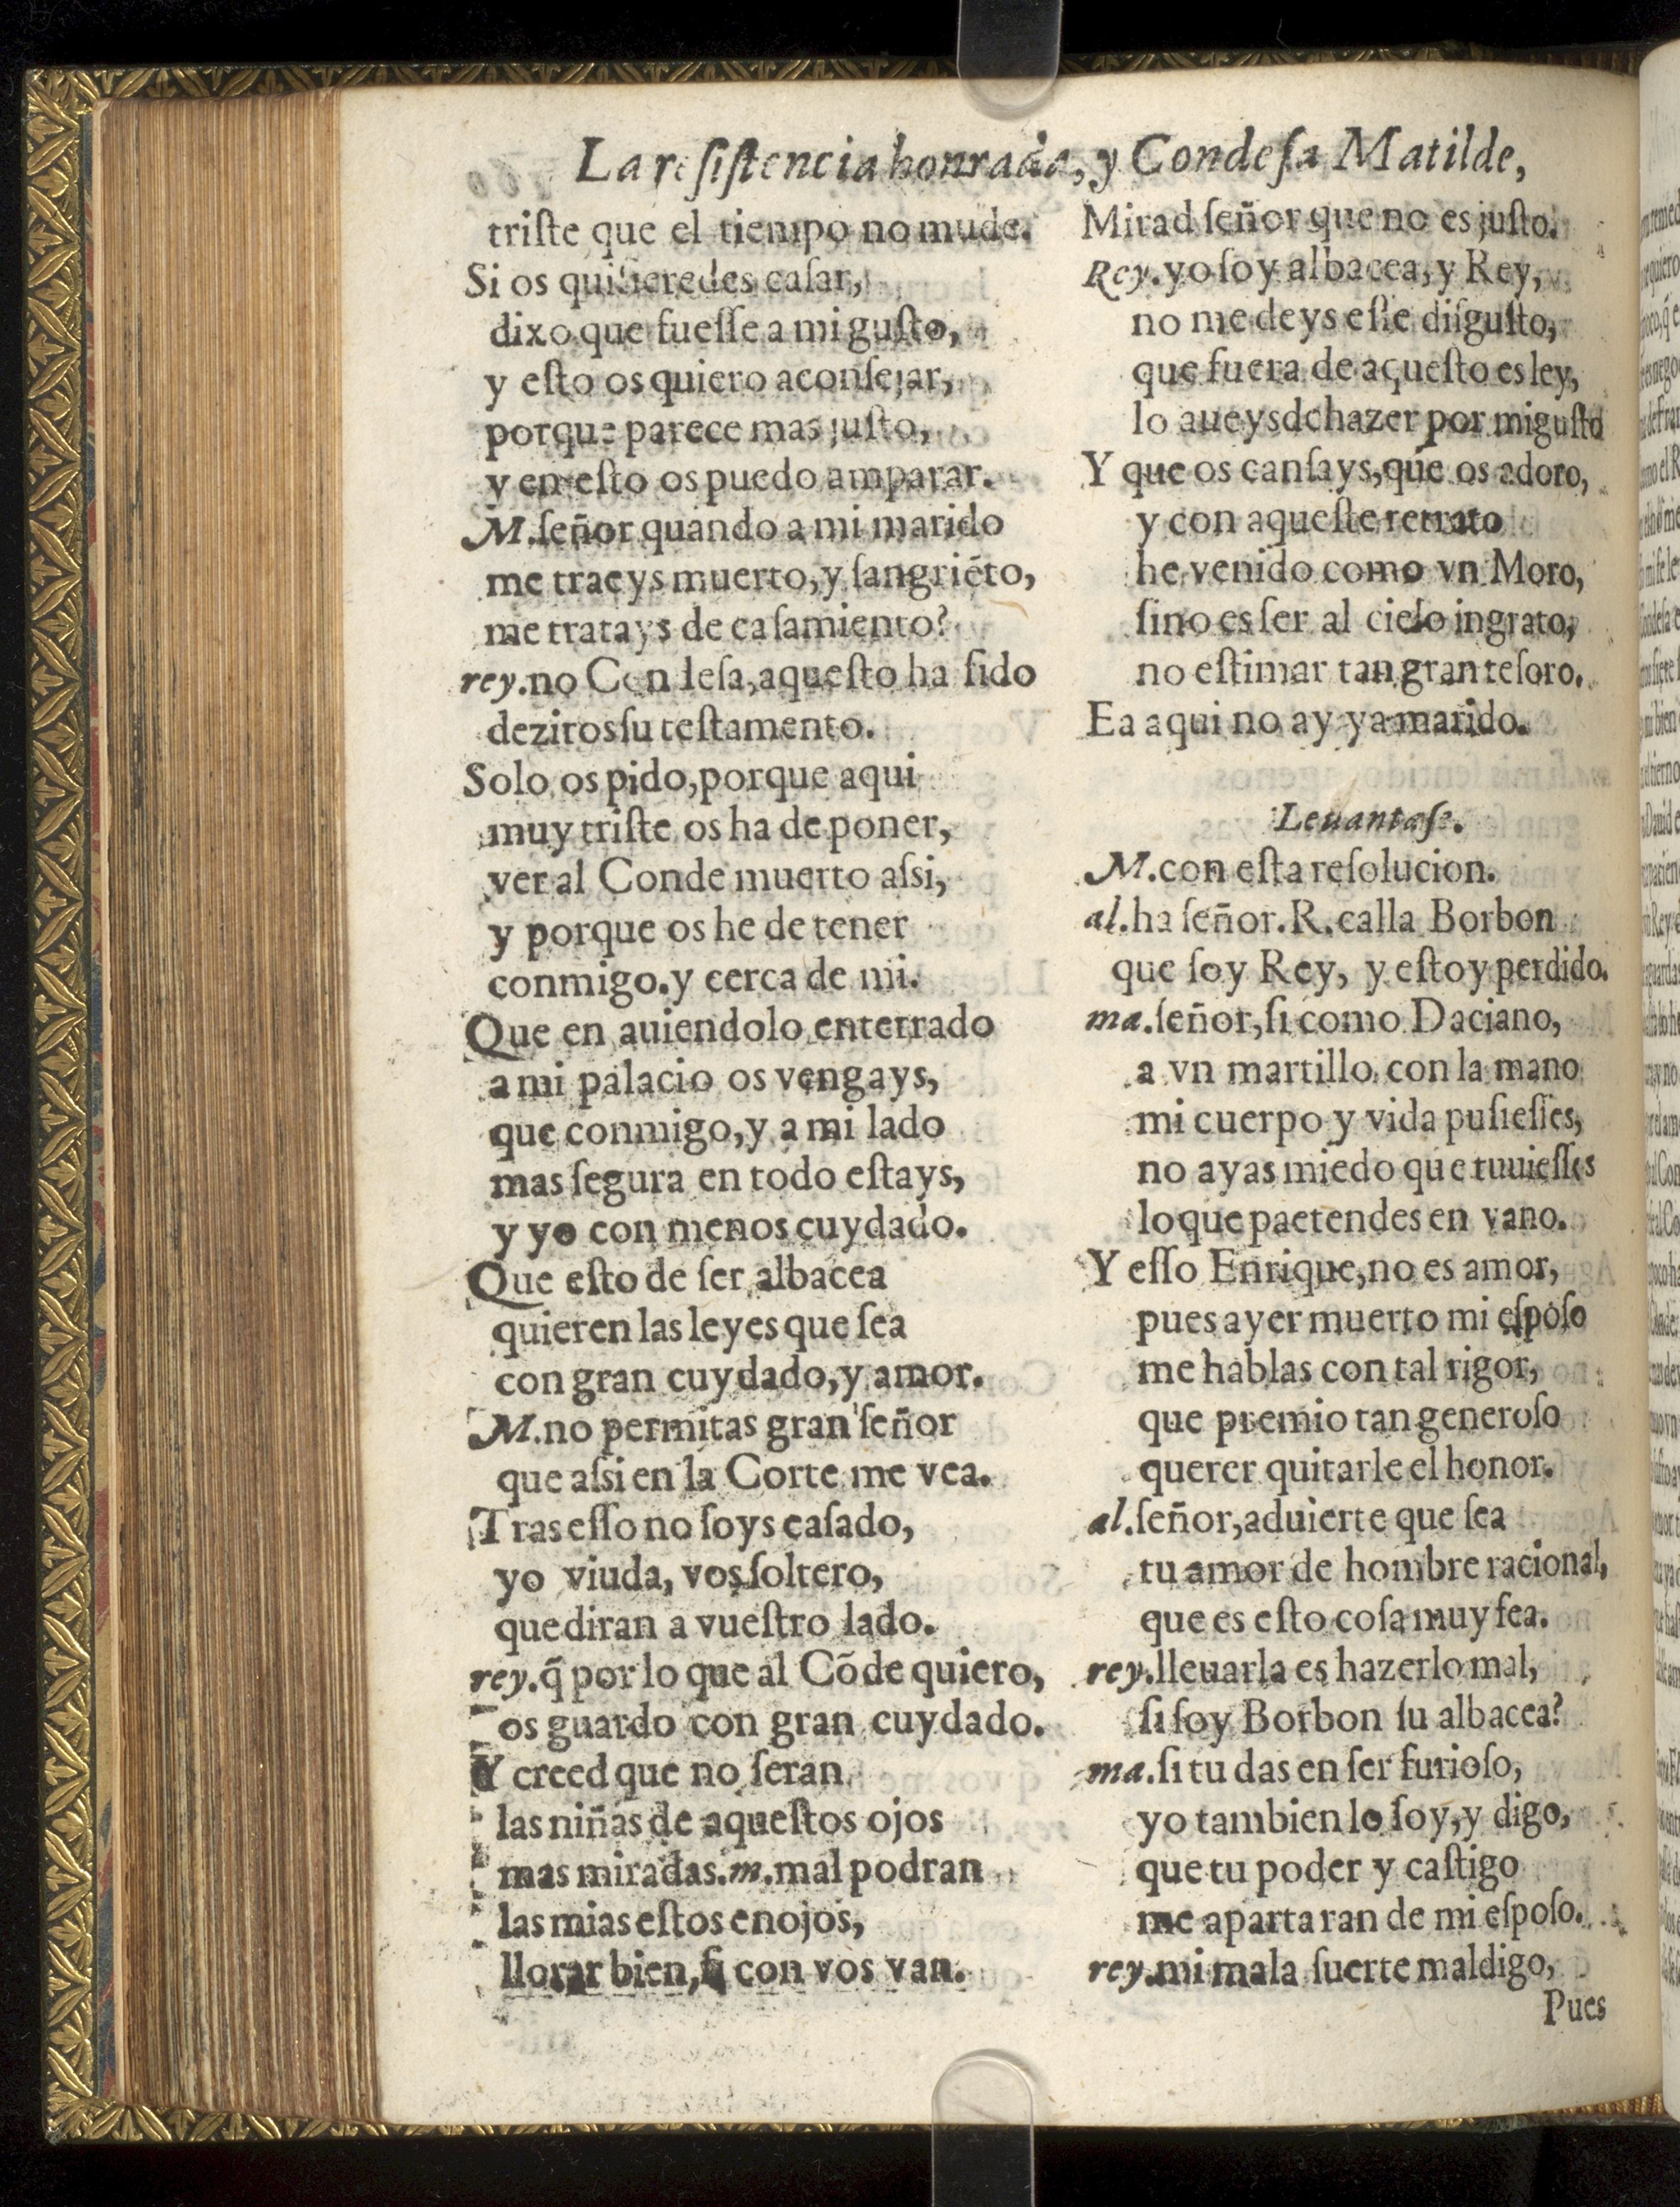 La resiſtencia honrada, y Condeſa Matilde,
triſte que el tiempo no mude.
Si os quiſieredes caſar,
dixo que fueſſe a mi guſto,
y eſto os quiero aconſejar,
porque parece mas juſto,
y en eſto os puedo amparar.
M. ſeñor quando a mi marido
me traeys muerto, y ſangriẽto,
me tratays de caſamiento?
rey. no Condeſa, aqueſto ha ſido
deziros ſu teſtamento.
Solo os pido, porque aqui
muy triſte os ha de poner,
ver al Conde muerto aſsi,
y porque os he de tener
conmigo. y cerca de mi.
Que en auiendolo enterrado
a mi palacio os vengays,
que conmigo, y a mi lado
mas ſegura en todo eſtays,
y yo con menos cuydado.
Que eſto de ſer albacea
quieren las leyes que ſea
con gran cuydado, y amor.
M. no permitas gran ſeñor
que aſsi en la Corte me vea.
Tras eſſo no ſoys caſado,
yo viuda, vos ſoltero,
que diran a vueſtro lado.
rey. q̃ por lo que al Cõde quiero,
os guardo con gran cuydado.
Y creed que no ſeran
las niñas de aqueſtos ojos
mas miradas. m. mal podran
las mias eſtos enojos,
llorar bien, ſi con vos van.
Mirad ſeñor que no es juſto.
Rey. yo ſoy albacea, y Rey,
no me deys eſſe diſguſto,
que fuera de aqueſto es ley,
lo aueys de hazer por mi guſto
Y que os canſays, que os adoro,
y con aqueſte retrato
he venido como vn Moro,
ſino es ſer al cielo ingrato,
no eſtimar tan gran teſoro.
Ea aqui no ay ya marido.
Leuantaſe.
M. con eſta reſolucion.
al. ha ſeñor. R. calla Borbon
que ſoy Rey, y eſtoy perdido.
ma. ſeñor, ſi como Daciano,
a vn martillo con la mano
mi cuerpo y vida puſieſſes,
no ayas miedo que tuuieſſes
lo que paetendes en vano.
Y eſſo Enrique, no es amor,
pues ayer muerto mi eſpoſo
me hablas con tal rigor,
que premio tan generoſo
querer quitarle el honor.
al. ſeñor, aduierte que ſea
tu amor de hombre racional,
que es eſto coſa muy fea.
rey. lleuarla es hazerlo mal,
ſi ſoy Borbon ſu albacea?
ma. ſi tu das en ſer furioſo,
yo tambien lo ſoy, y digo,
que tu poder y caſtigo
me apartaran de mi eſpoſo.
rey. mi mala ſuerte maldigo,
Pues